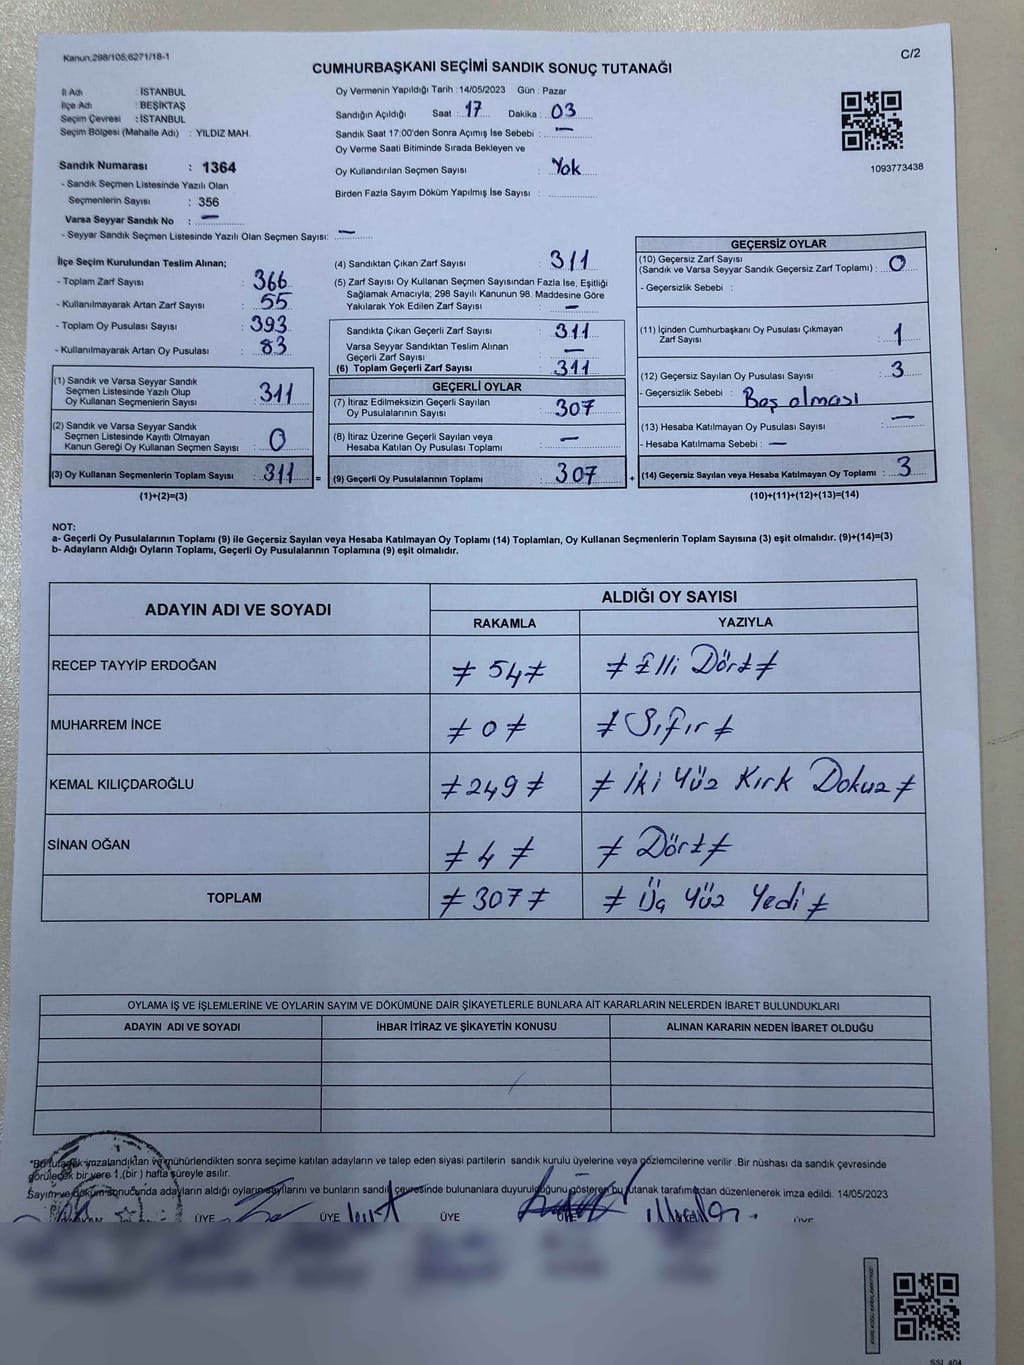 Kanun;298/105;6271/18-1
C/2
CUMHURBAŞKANI SEÇİMİ SANDIK SONUÇ TUTANAĞI
İl Adı : İSTANBUL
İlçe Adı : BEŞİKTAŞ
Seçim Çevresi : İSTANBUL
Seçim Bölgesi (Mahalle Adı) : YILDIZ MAH.
Sandık Numarası : 1364
- Sandık Seçmen Listesinde Yazılı Olan
Seçmenlerin Sayısı : 356
Varsa Seyyar Sandık No : —
- Seyyar Sandık Seçmen Listesinde Yazılı Olan Seçmen Sayısı: —
Oy Vermenin Yapıldığı Tarih : 14/05/2023 Gün : Pazar
Sandığın Açıldığı Saat : 17 Dakika : 03
Sandık Saat 17:00'den Sonra Açımış İse Sebebi : —
Oy Verme Saati Bitiminde Sırada Bekleyen ve
Oy Kullandırılan Seçmen Sayısı : Yok
Birden Fazla Sayım Döküm Yapılmış İse Sayısı :
1093773438
İlçe Seçim Kurulundan Teslim Alınan;
- Toplam Zarf Sayısı : 366
- Kullanılmayarak Artan Zarf Sayısı : 55
- Toplam Oy Pusulası Sayısı : 393
- Kullanılmayarak Artan Oy Pusulası : 83
(1) Sandık ve Varsa Seyyar Sandık
Seçmen Listesinde Yazılı Olup
Oy Kullanan Seçmenlerin Sayısı : 311
(2) Sandık ve Varsa Seyyar Sandık
Seçmen Listesinde Kayıtlı Olmayan
Kanun Gereği Oy Kullanan Seçmen Sayısı : 0
(3) Oy Kullanan Seçmenlerin Toplam Sayısı : 311 =
(1)+(2)=(3)
(4) Sandıktan Çıkan Zarf Sayısı : 311
(5) Zarf Sayısı Oy Kullanan Seçmen Sayısından Fazla İse, Eşitliği
Sağlamak Amacıyla; 298 Sayılı Kanunun 98. Maddesine Göre
Yakılarak Yok Edilen Zarf Sayısı : —
Sandıkta Çıkan Geçerli Zarf Sayısı : 311
Varsa Seyyar Sandıktan Teslim Alınan
Geçerli Zarf Sayısı : —
(6) Toplam Geçerli Zarf Sayısı : 311
GEÇERLİ OYLAR
(7) İtiraz Edilmeksizin Geçerli Sayılan
Oy Pusulalarının Sayısı : 307
(8) İtiraz Üzerine Geçerli Sayılan veya
Hesaba Katılan Oy Pusulası Toplamı : —
(9) Geçerli Oy Pusulalarının Toplamı : 307 +
GEÇERSİZ OYLAR
(10) Geçersiz Zarf Sayısı
(Sandık ve Varsa Seyyar Sandık Geçersiz Zarf Toplamı) : 0
- Geçersizlik Sebebi :
(11) İçinden Cumhurbaşkanı Oy Pusulası Çıkmayan
Zarf Sayısı : 1
(12) Geçersiz Sayılan Oy Pusulası Sayısı : 3
- Geçersizlik Sebebi : Boş olması
(13) Hesaba Katılmayan Oy Pusulası Sayısı : —
- Hesaba Katılmama Sebebi : —
(14) Geçersiz Sayılan veya Hesaba Katılmayan Oy Toplamı : 3
(10)+(11)+(12)+(13)=(14)
NOT:
a- Geçerli Oy Pusulalarının Toplamı (9) ile Geçersiz Sayılan veya Hesaba Katılmayan Oy Toplamı (14) Toplamları, Oy Kullanan Seçmenlerin Toplam Sayısına (3) eşit olmalıdır. (9)+(14)=(3)
b- Adayların Aldığı Oyların Toplamı, Geçerli Oy Pusulalarının Toplamına (9) eşit olmalıdır.
ADAYIN ADI VE SOYADI
ALDIĞI OY SAYISI
RAKAMLA YAZIYLA
RECEP TAYYİP ERDOĞAN ≠ 54 ≠ ≠ Elli Dört ≠
MUHARREM İNCE ≠ 0 ≠ ≠ Sıfır ≠
KEMAL KILIÇDAROĞLU ≠ 249 ≠ ≠ İki Yüz Kırk Dokuz ≠
SİNAN OĞAN ≠ 4 ≠ ≠ Dört ≠
TOPLAM ≠ 307 ≠ ≠ Üç Yüz Yedi ≠
OYLAMA İŞ VE İŞLEMLERİNE VE OYLARIN SAYIM VE DÖKÜMÜNE DAİR ŞİKAYETLERLE BUNLARA AİT KARARLARIN NELERDEN İBARET BULUNDUKLARI
ADAYIN ADI VE SOYADI İHBAR İTİRAZ VE ŞİKAYETİN KONUSU ALINAN KARARIN NEDEN İBARET OLDUĞU
*Bu tutanak imzalandıktan ve mühürlendikten sonra seçime katılan adayların ve talep eden siyasi partilerin sandık kurulu üyelerine veya gözlemcilerine verilir .Bir nüshası da sandık çevresinde
görülecek bir yere 1 (bir) hafta süreyle asılır.
Sayım ve döküm sonucunda adayların aldığı oyların sayılarını ve bunların sandık çevresinde bulunanlara duyurulduğunu gösteren bu tutanak tarafımızdan düzenlenerek imza edildi. 14/05/2023
ÜYE ÜYE ÜYE ÜYE ÜYE